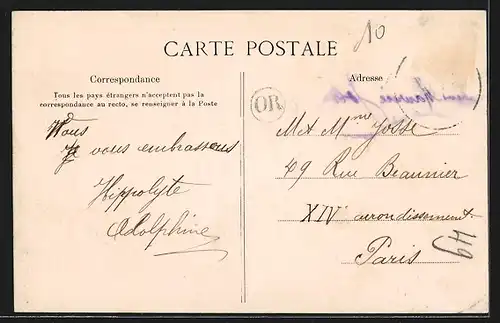 10
CARTE POSTALE
Correspondance
Adresse
Tous les pays étrangers n'acceptent pas la
correspondance au recto, se renseigner à la Poste
OR
Nous
vous embrassons
Hippolyte
Adolphine
M et Mme Josse
49 Rue Beaunier
XIVe arrondissement
Paris